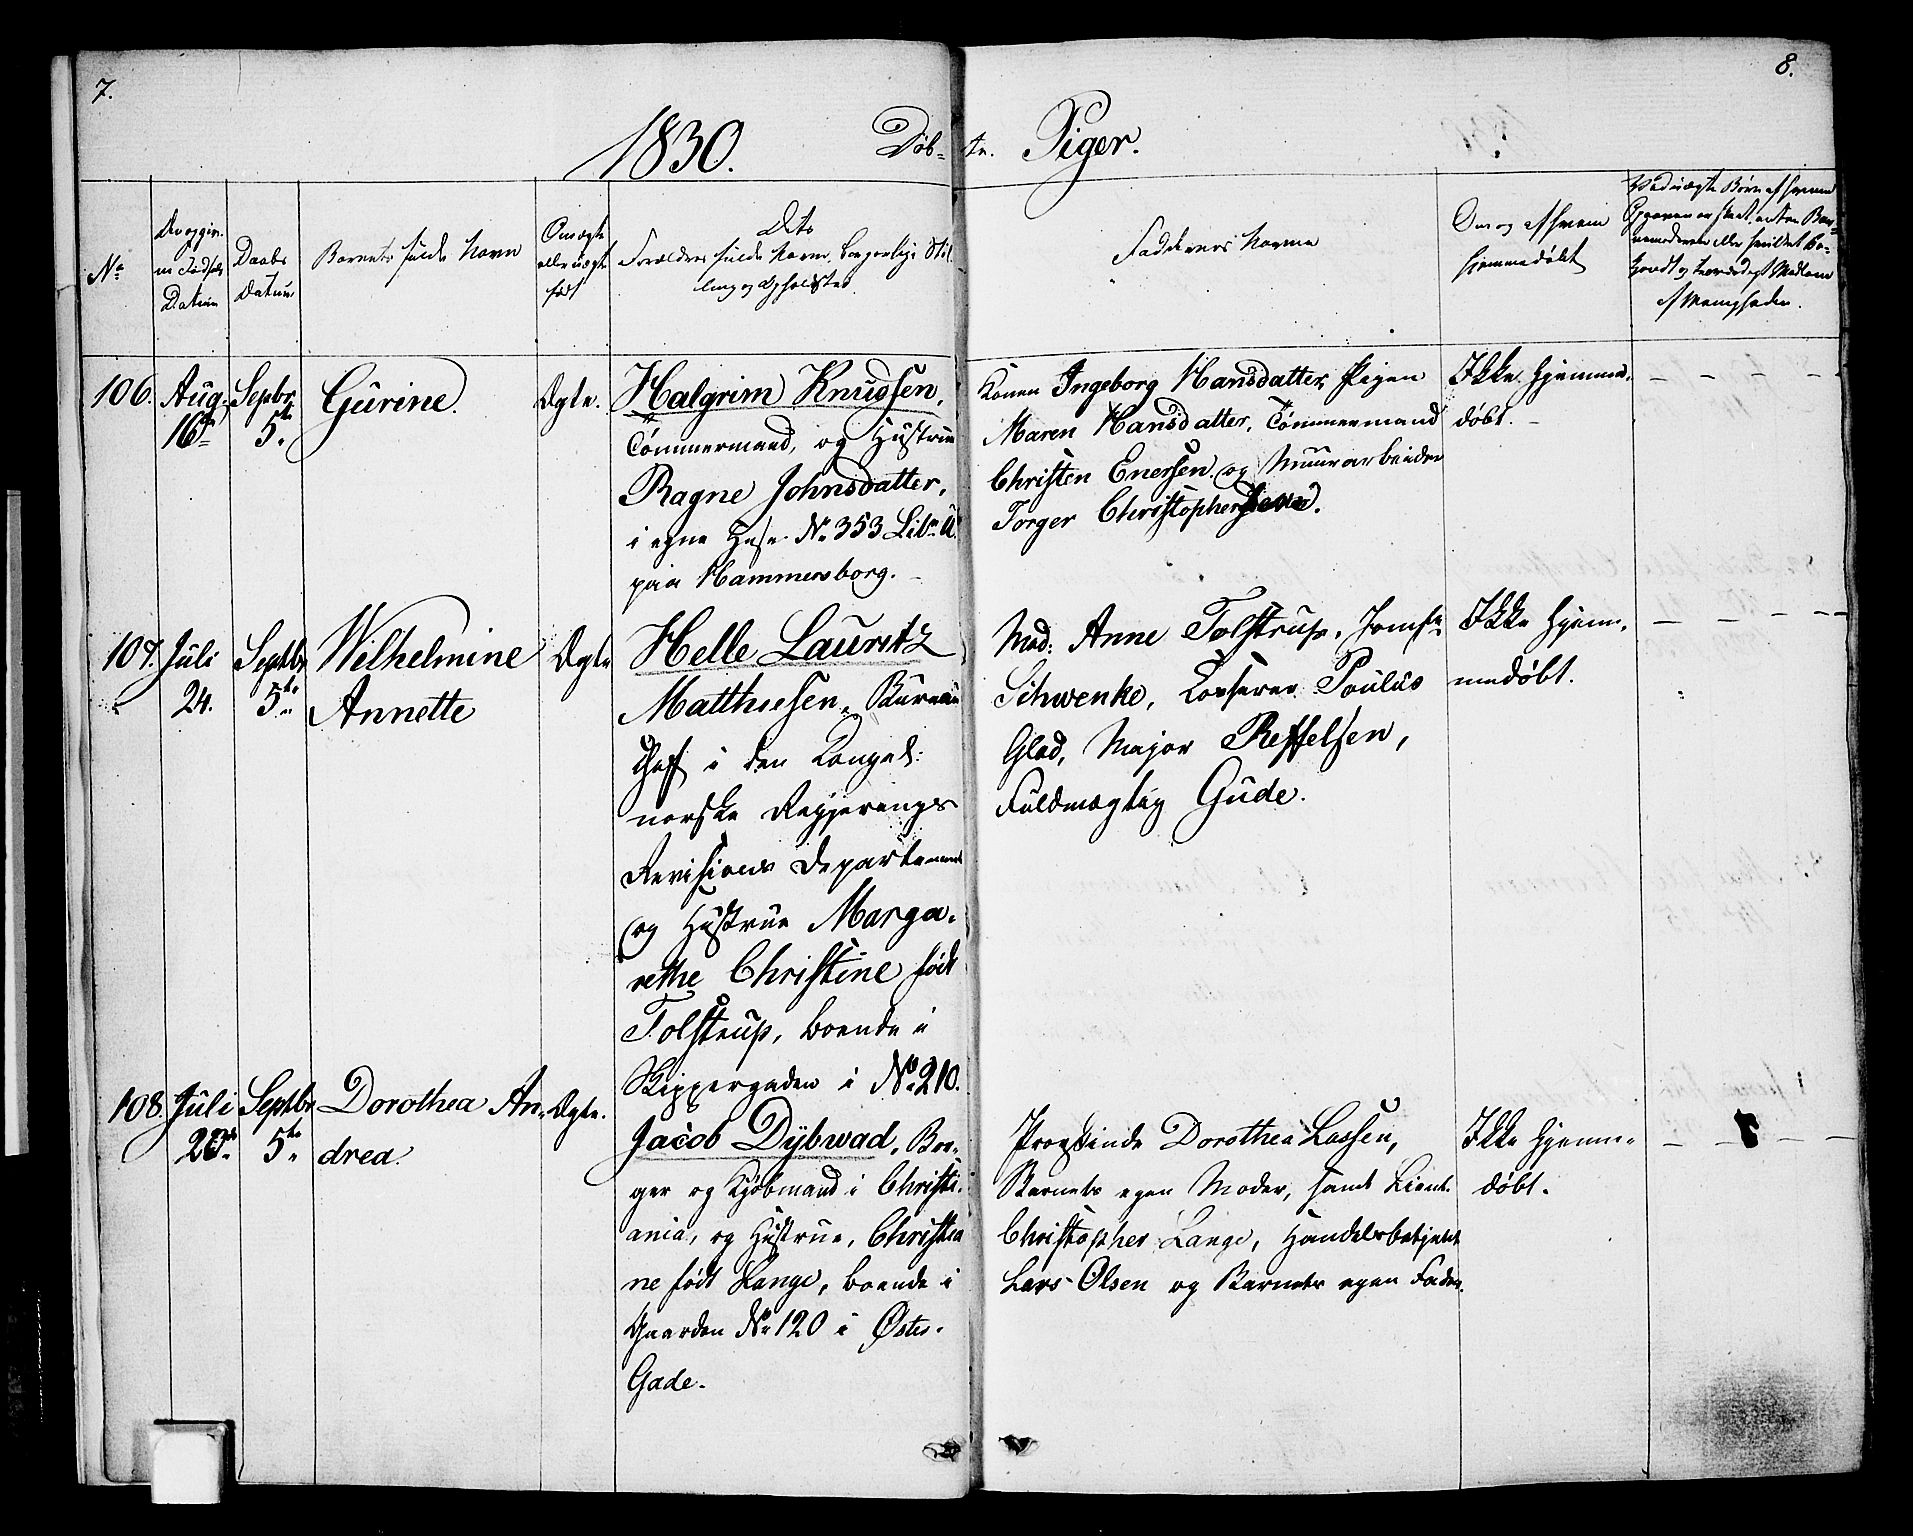 7.
8.
1830. Døb- te. Piger.
No
Den opgivne Fødsels Datum
Daabs Datum
Barnets fulde Navn
Om ægte eller uægte født
Dets
Forældres fulde Navn, borgerlige Stilling og Opholdsted
Faddernes Navne
Om og af hvem hjemmedøbt
Ved uægte Børn af hvem Opgaven er skeet, enten Barnemoderen eller hvilket bekjendt og troværdigt Medlem af Menigheden.
106. Aug. 16de Septbr 5te Gurine. Ægte.
Halgrim Knudsen,
Tømmermand, og Hustrue
Ragne Johnsdatter,
i egne Huse No 353 Litr A.
paa Hammersborg.
Konen Ingeborg Hansdatter, Pigen
Maren Hansdatter, Tømmermand
Christen Enersen og Muurarbeider
Torger Christophersen.
Ikke hjemme-
døbt.
107. Juli 24. Septbr 5te Wilhelmine
Annette
Ægte
Helle Lauritz
Matthiesen, Bureau
Chef i den Kongel:
norske Regjerings
Revisions Departement
og Hustrue Marga-
rethe Christine født
Tolstrup, boende i
Skippergaden i No 210.
Mad: Anne Tolstrup, Jomfr
Schwenke, Casserer Poulus
Glad, Major Reffelsen,
Fuldmægtig Gude.
Ikke hjem-
medøbt.
108. Juli 20de Septbr 5te Dorothea An-
drea.
Ægte.
Jacob Dybwad, Bor-
ger og Kjøbmand i Christi-
ania, og Hustrue, Christia
ne født Lange, boende i
Gaarden No 120 i Østre-
Gade.
Provstinde Dorothea Lassen,
Barnets egen Moder, samt Lieut.
Christopher Lange, Handelsbetjent
Lars Olsen og Barnets egen Fader.
Ikke hjemme-
døbt.